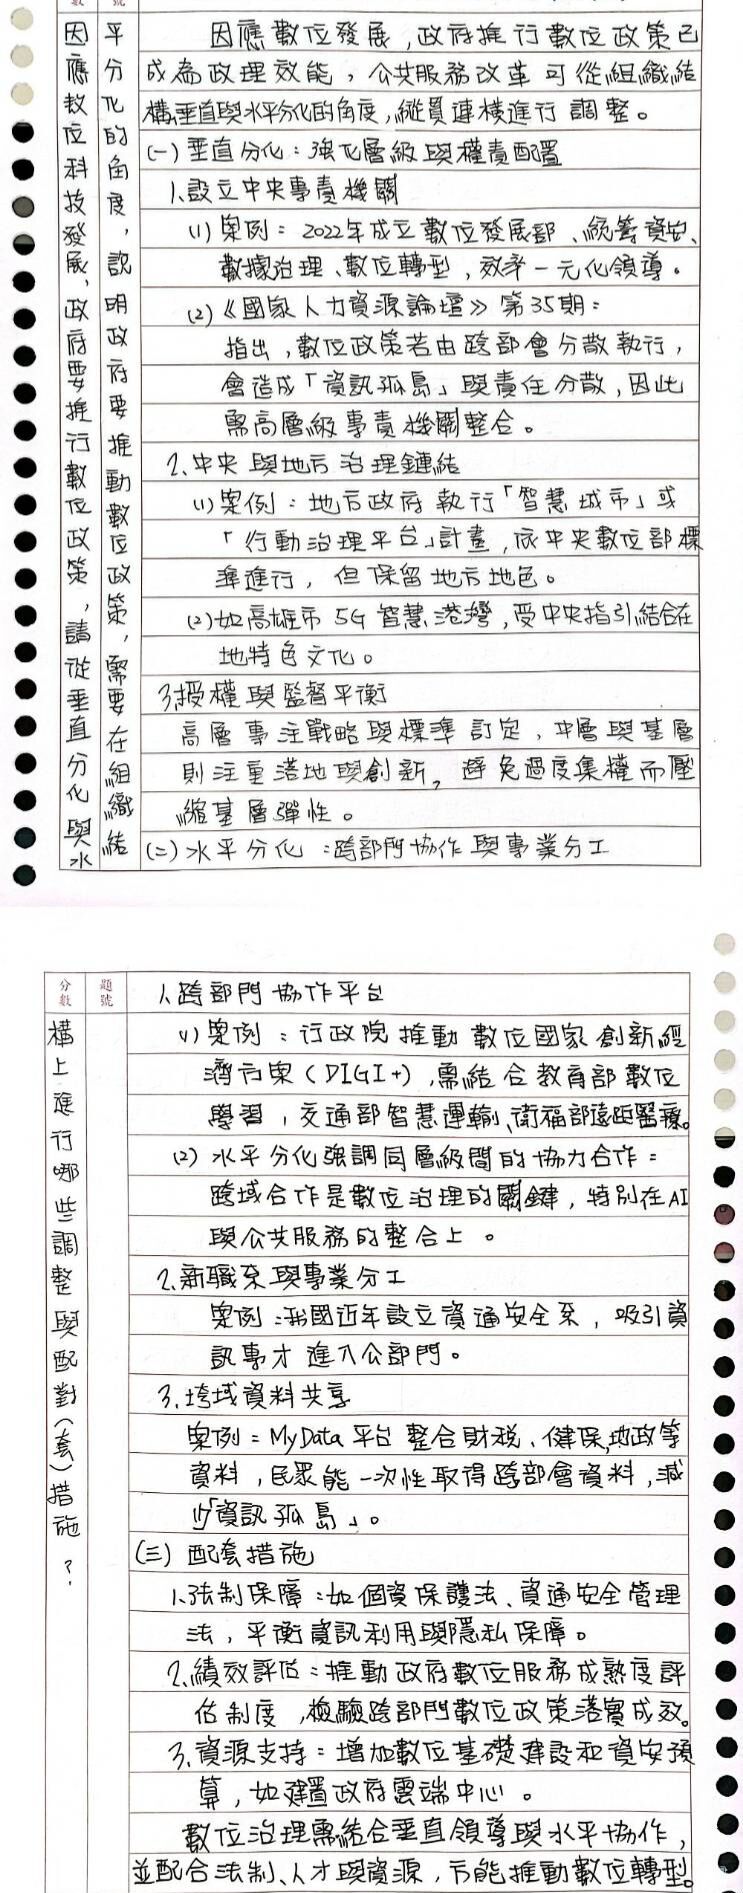 因應數位科技發展，政府要推行數位政策，請從垂直分化與水
平分化的角度，說明政府要推動數位政策，需要在組織結
因應數位發展，政府推行數位政策已
成為政理效能，公共服務改革可從組織結
構垂直與水平分化的角度，縱貫連橫進行調整。
(一) 垂直分化：強化層級與權責配置
1.設立中央專責機關
(1) 案例：2022年成立數位發展部、統籌資安、
數據治理、數位轉型，效率一元化領導。
(2)《國家人力資源論壇》第35期：
指出，數位政策若由跨部會分散執行，
會造成「資訊孤島」與責任分散，因此
需高層級專責機關整合。
2.中央與地方治理鏈結
(1) 案例：地方政府執行「智慧城市」或
「行動治理平台」計畫，依中央數位部標
準進行，但保留地方地色。
(2)如高雄市5G智慧港灣，受中央指引結合在
地特色文化。
3.授權與監督平衡
高層專注戰略與標準訂定，中層與基層
則注重落地與創新，避免過度集權而壓
縮基層彈性。
(二) 水平分化：跨部門協作與專業分工
分數
題號
構上進行哪些調整與配對(套)措施？
1.跨部門協作平台
(1) 案例：行政院推動數位國家創新經
濟方案(DIGI+)，需結合教育部數位
學習，交通部智慧運輸、衛福部遠距醫療。
(2) 水平分化強調同層級間的協力合作：
跨域合作是數位治理的關鍵，特別在AI
與公共服務的整合上。
2.新職系與專業分工
案例：我國近年設立資通安全系，吸引資
訊專才進入公部門。
3.垮域資料共享
案例：MyData平台整合財稅、健保,地政等
資料，民眾能一次性取得跨部會資料，減
少「資訊孤島」。
(三) 配套措施
1.法制保障：如個資保護法、資通安全管理
法，平衡資訊利用與隱私保障。
2.績效評估：推動政府數位服務成熟度評
估制度，檢驗跨部門數位政策落實成效。
3.資源支持：增加數位基礎建設和資安預
算，如建置政府雲端中心。
數位治理需結合垂直領導與水平協作，
並配合法制、人才與資源，方能推動數位轉型。